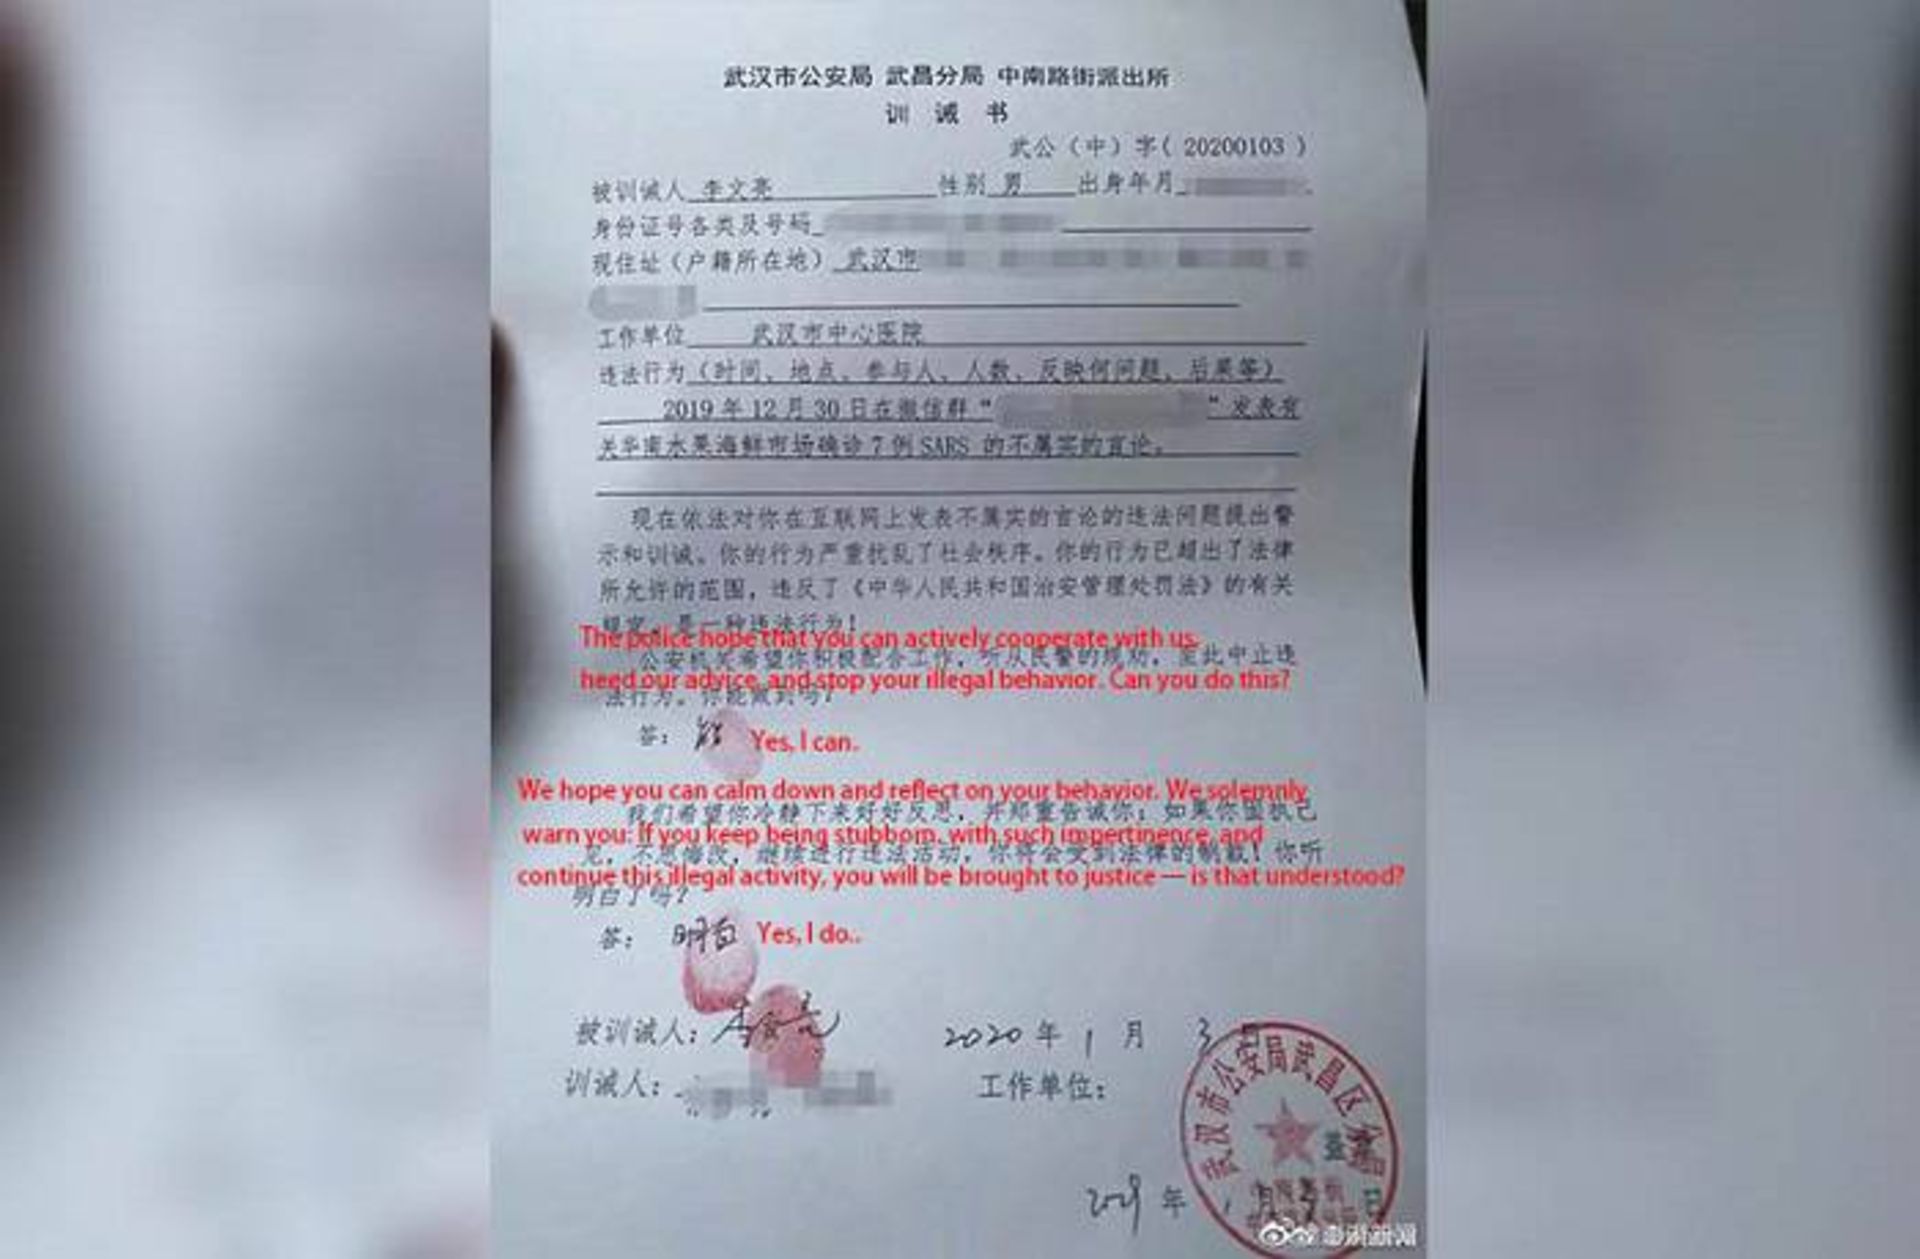 武汉市公安局 武昌分局 中南路街派出所
训 诫 书
武公（中）字（20200103）
被训诫人 李文亮 性别 男 出身年月
身份证号各类及号码
现住址（户籍所在地） 武汉市
工作单位 武汉市中心医院
违法行为（时间、地点、参与人、人数、反映何问题、后果等）
2019年12月30日在微信群“ ”发表有
关华南水果海鲜市场确诊7例SARS的不属实的言论。
现在依法对你在互联网上发表不属实的言论的违法问题提出警
示和训诫。你的行为严重扰乱了社会秩序。你的行为已超出了法律
所允许的范围，违反了《中华人民共和国治安管理处罚法》的有关
规定，是一种违法行为！
The police hope that you can actively cooperate with us,
公安机关希望你积极配合工作，听从民警的规劝，至此中止违
heed our advice, and stop your illegal behavior. Can you do this?
法行为。你能做到吗？
答： 能 Yes, I can.
We hope you can calm down and reflect on your behavior. We solemnly
我们希望你冷静下来好好反思，并郑重告诫你：如果你固执己
warn you: If you keep being stubborn, with such impertinence, and
见，不思悔改，继续进行违法活动，你将会受到法律的制裁！你听
continue this illegal activity, you will be brought to justice — is that understood?
明白了吗？
答： 明白 Yes, I do..
被训诫人： 李文亮 2020年1月3日
训诫人： 工作单位：
武汉市公安局武昌区分局
年 月 日
澎湃新闻